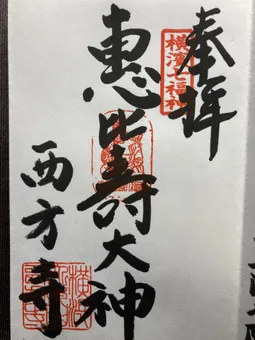 奉拝
横浜七福神
恵比寿大神
西方寺